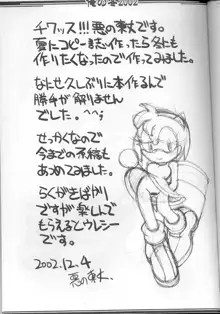 俺の冬2002
チワッス!!!悪の東大です。
夏にコピー誌作ったら冬にも
作りたくなったので作ってみました。
なにせ久しぶりに本作るんで
勝手が解りません
でした。^^;
せっかくなので
今までの原稿も
あつめてみました。
らくがきばかり
ですが楽しんで
もらえるとウレシー
です。
2002.12.4